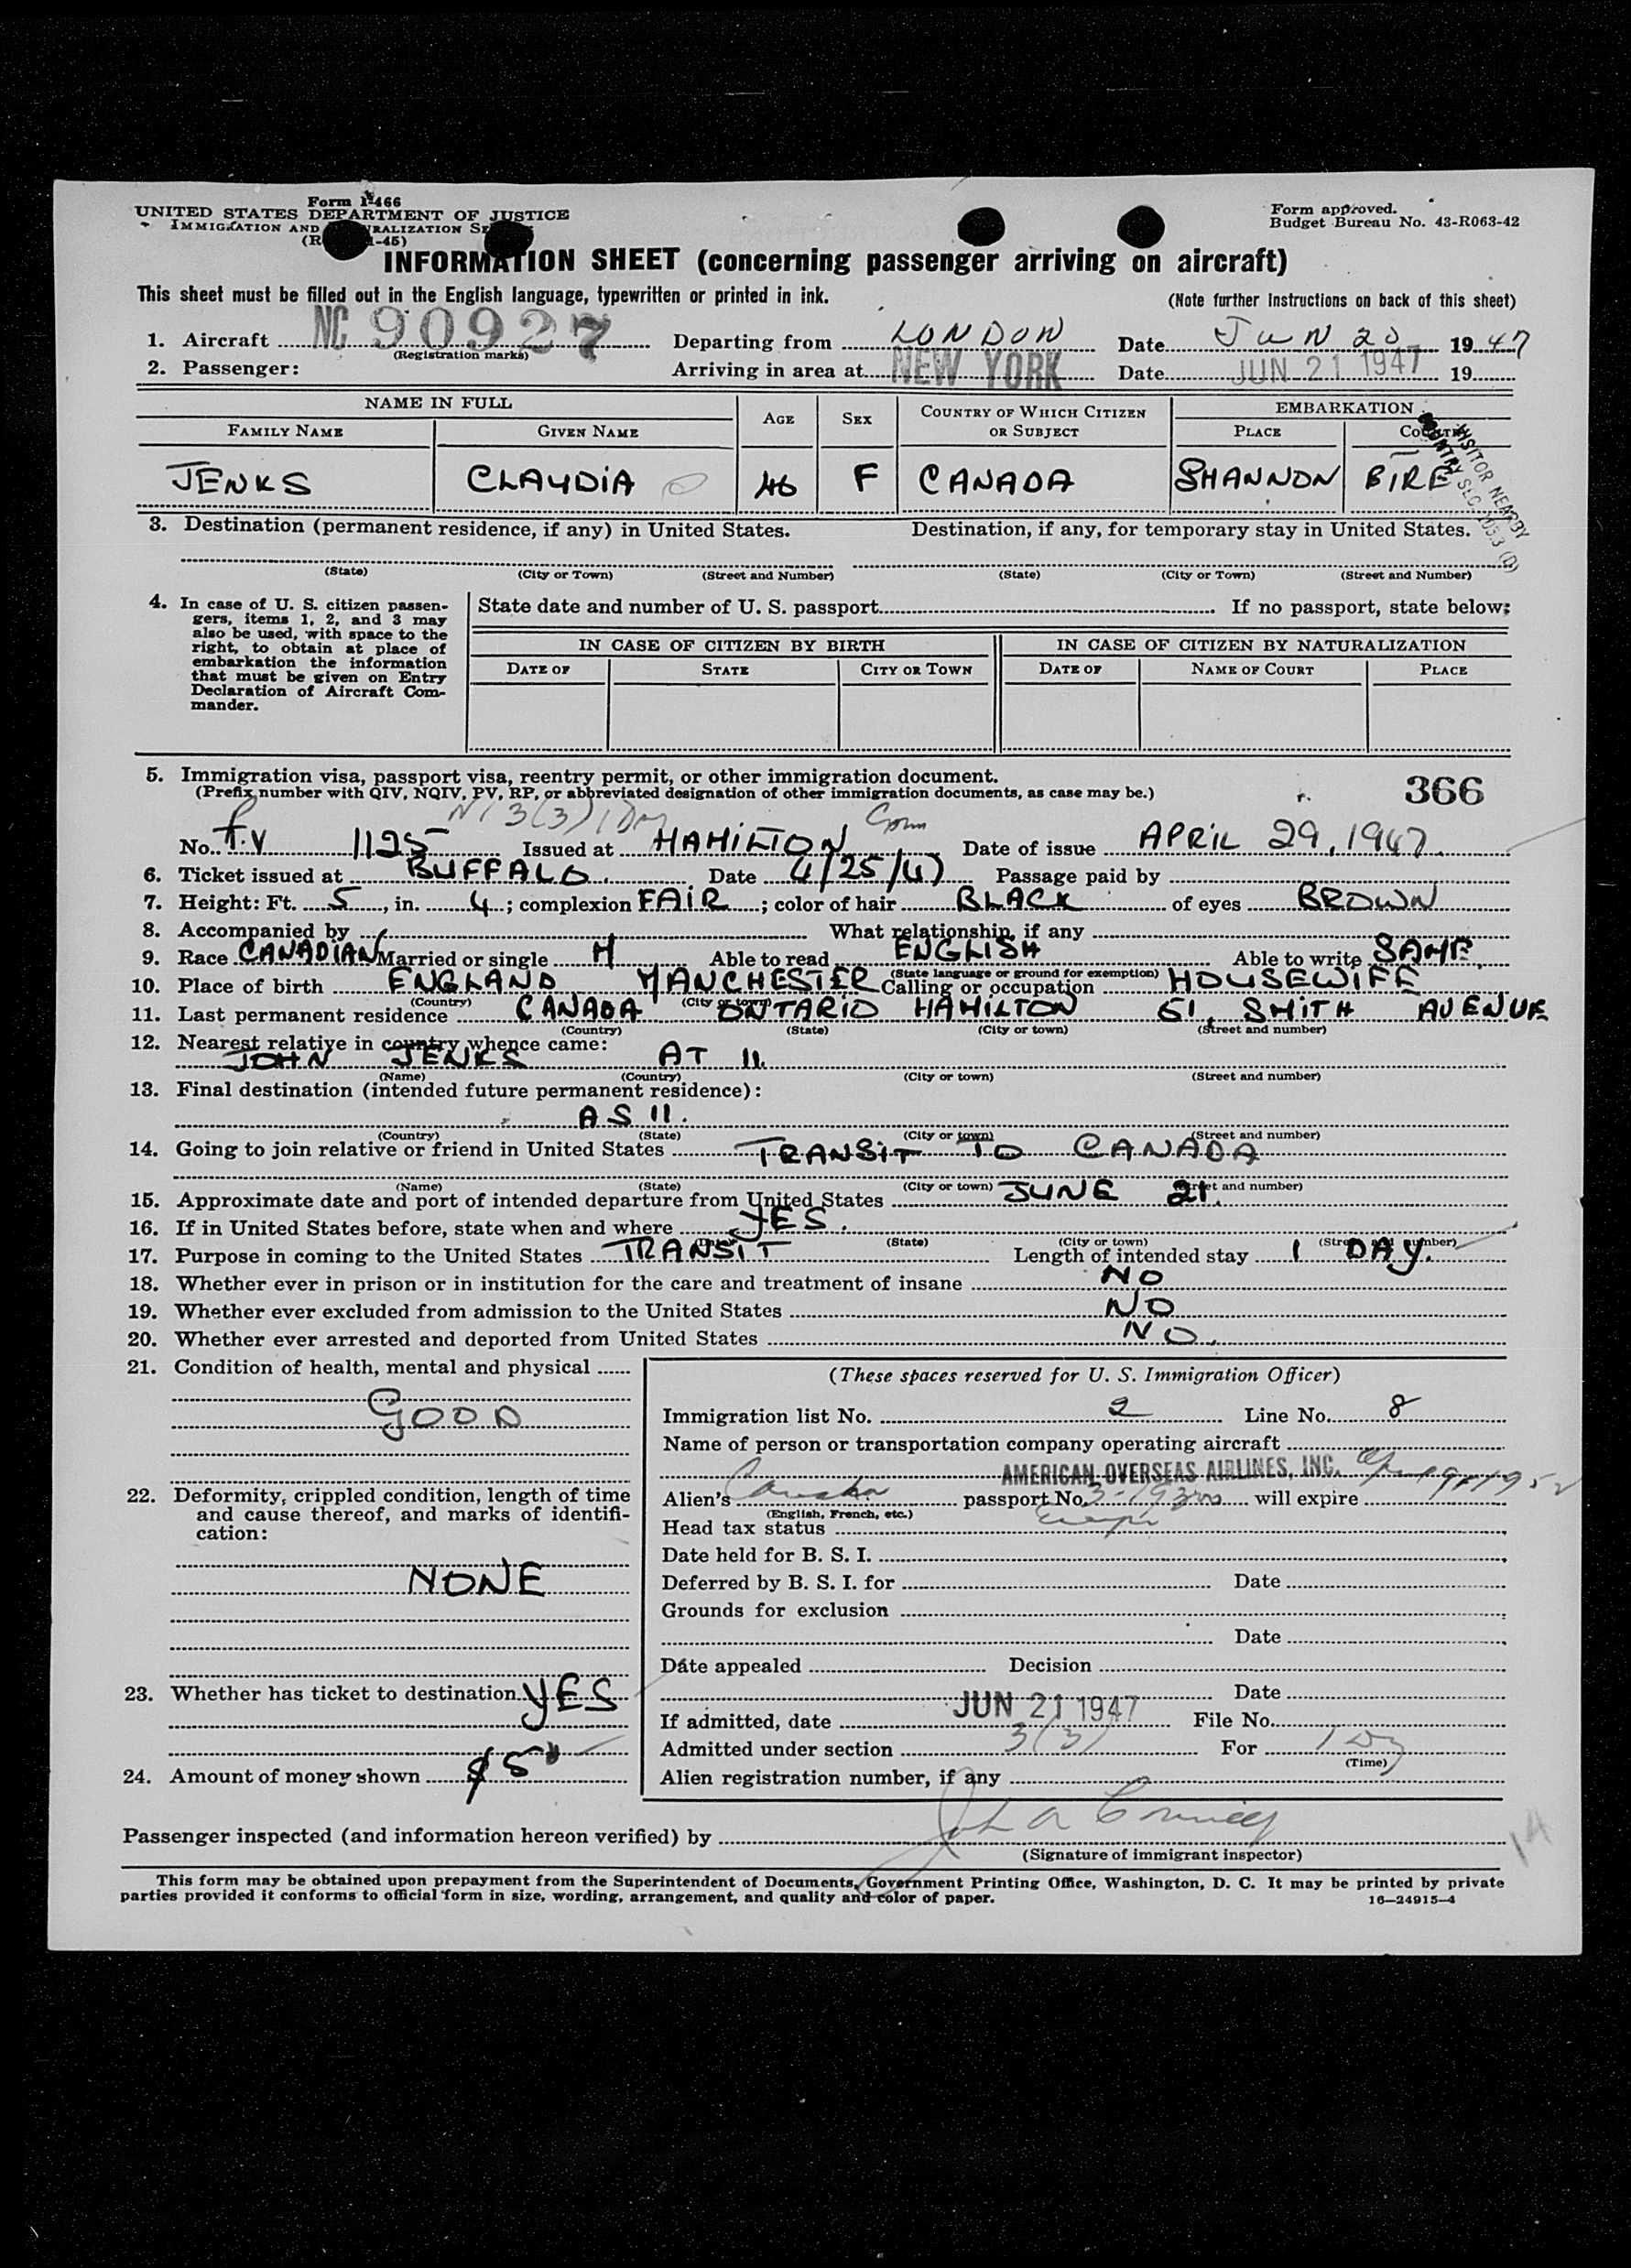 Form I-466
UNITED STATES DEPARTMENT OF JUSTICE
Form approved.
Budget Bureau No. 43-R063-42
INFORMATION SHEET (concerning passenger arriving on aircraft)
This sheet must be filled out in the English language, typewritten or printed in ink.
(Note further instructions on back of this sheet)
1. Aircraft NC 90927 Departing from LONDON Date JUN 20 1947
(Registration marks)
2. Passenger: Arriving in area at NEW YORK Date JUN 21 1947 19
NAME IN FULL AGE SEX COUNTRY OF WHICH CITIZEN OR SUBJECT EMBARKATION
FAMILY NAME GIVEN NAME PLACE COUNTRY
JENKS CLAUDIA 46 F CANADA SHANNON EIRE
VISITOR NEARBY
COUNTRY SEC.
3. Destination (permanent residence, if any) in United States. Destination, if any, for temporary stay in United States.
(State) (City or Town) (Street and Number) (State) (City or Town) (Street and Number)
4. In case of U. S. citizen passen-
gers, items 1, 2, and 3 may
also be used, with space to the
right, to obtain at place of
embarkation the information
that must be given on Entry
Declaration of Aircraft Com-
mander.
State date and number of U. S. passport If no passport, state below:
IN CASE OF CITIZEN BY BIRTH IN CASE OF CITIZEN BY NATURALIZATION
DATE OF STATE CITY OR TOWN DATE OF NAME OF COURT PLACE
5. Immigration visa, passport visa, reentry permit, or other immigration document.
(Prefix number with QIV, NQIV, PV, RP, or abbreviated designation of other immigration documents, as case may be.)
366
No. 1125 Issued at HAMILTON Date of issue APRIL 29, 1947.
6. Ticket issued at BUFFALO. Date 4/25/47 Passage paid by
7. Height: Ft. 5, in. 4; complexion FAIR; color of hair BLACK of eyes BROWN
8. Accompanied by What relationship, if any
9. Race CANADIAN Married or single M Able to read ENGLISH Able to write SAME
(State language or ground for exemption)
10. Place of birth ENGLAND MANCHESTER Calling or occupation HOUSEWIFE
(Country) (City or town)
11. Last permanent residence CANADA ONTARIO HAMILTON 51 SMITH AVENUE
(Country) (State) (City or town) (Street and number)
12. Nearest relative in country whence came:
JOHN JENKS AT 11.
(Name) (Country) (City or town) (Street and number)
13. Final destination (intended future permanent residence):
AS 11.
(Country) (State) (City or town) (Street and number)
14. Going to join relative or friend in United States TRANSIT TO CANADA
(Name) (State) (City or town) (Street and number)
15. Approximate date and port of intended departure from United States JUNE 21.
16. If in United States before, state when and where YES.
(State) (City or town) (Street and number)
17. Purpose in coming to the United States TRANSIT Length of intended stay 1 DAY.
18. Whether ever in prison or in institution for the care and treatment of insane NO
19. Whether ever excluded from admission to the United States NO
20. Whether ever arrested and deported from United States NO.
21. Condition of health, mental and physical
GOOD
22. Deformity, crippled condition, length of time
and cause thereof, and marks of identifi-
cation:
NONE
23. Whether has ticket to destination YES
24. Amount of money shown $5
(These spaces reserved for U. S. Immigration Officer)
Immigration list No. 2 Line No. 8
Name of person or transportation company operating aircraft
AMERICAN OVERSEAS AIRLINES, INC.
Alien's passport No. will expire
(English, French, etc.)
Head tax status
Date held for B. S. I.
Deferred by B. S. I. for Date
Grounds for exclusion
Date
Date appealed Decision
Date
If admitted, date JUN 21 1947 File No.
Admitted under section 3(3) For 1 Dy
(Time)
Alien registration number, if any
Passenger inspected (and information hereon verified) by
(Signature of immigrant inspector)
14
This form may be obtained upon prepayment from the Superintendent of Documents, Government Printing Office, Washington, D. C. It may be printed by private
parties provided it conforms to official form in size, wording, arrangement, and quality and color of paper.
16—24915-4